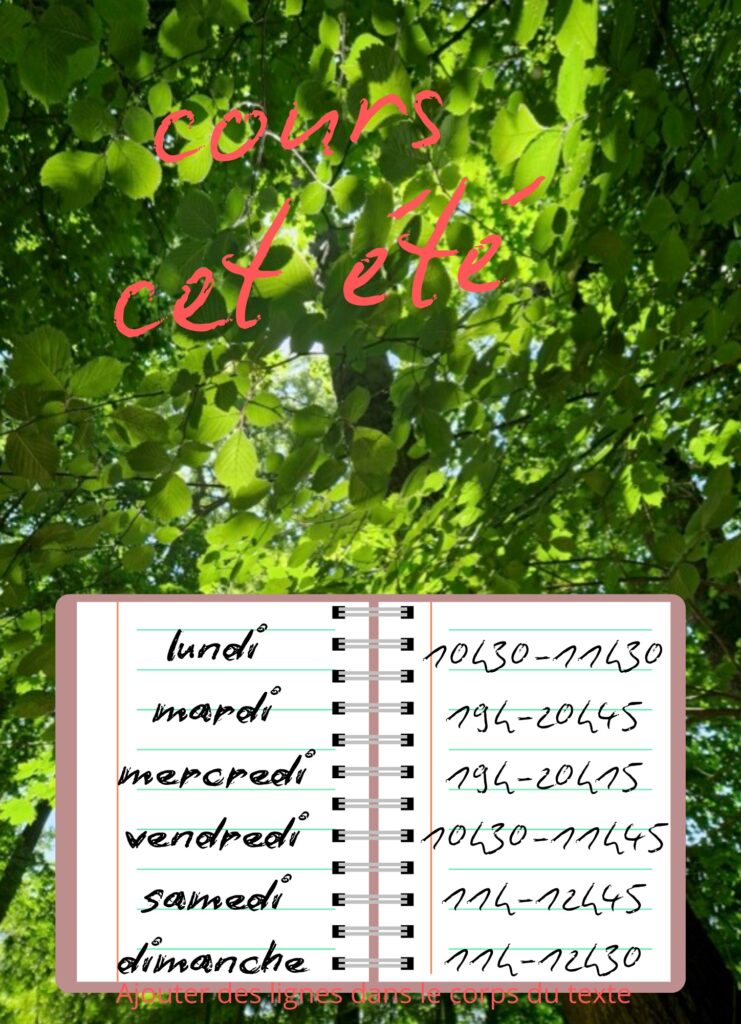 cours
cet été
lundi 10h30-11h30
mardi 19h-20h45
mercredi 19h-20h15
vendredi 10h30-11h45
samedi 11h-12h45
dimanche 11h-12h30
Ajouter des lignes dans le corps du texte